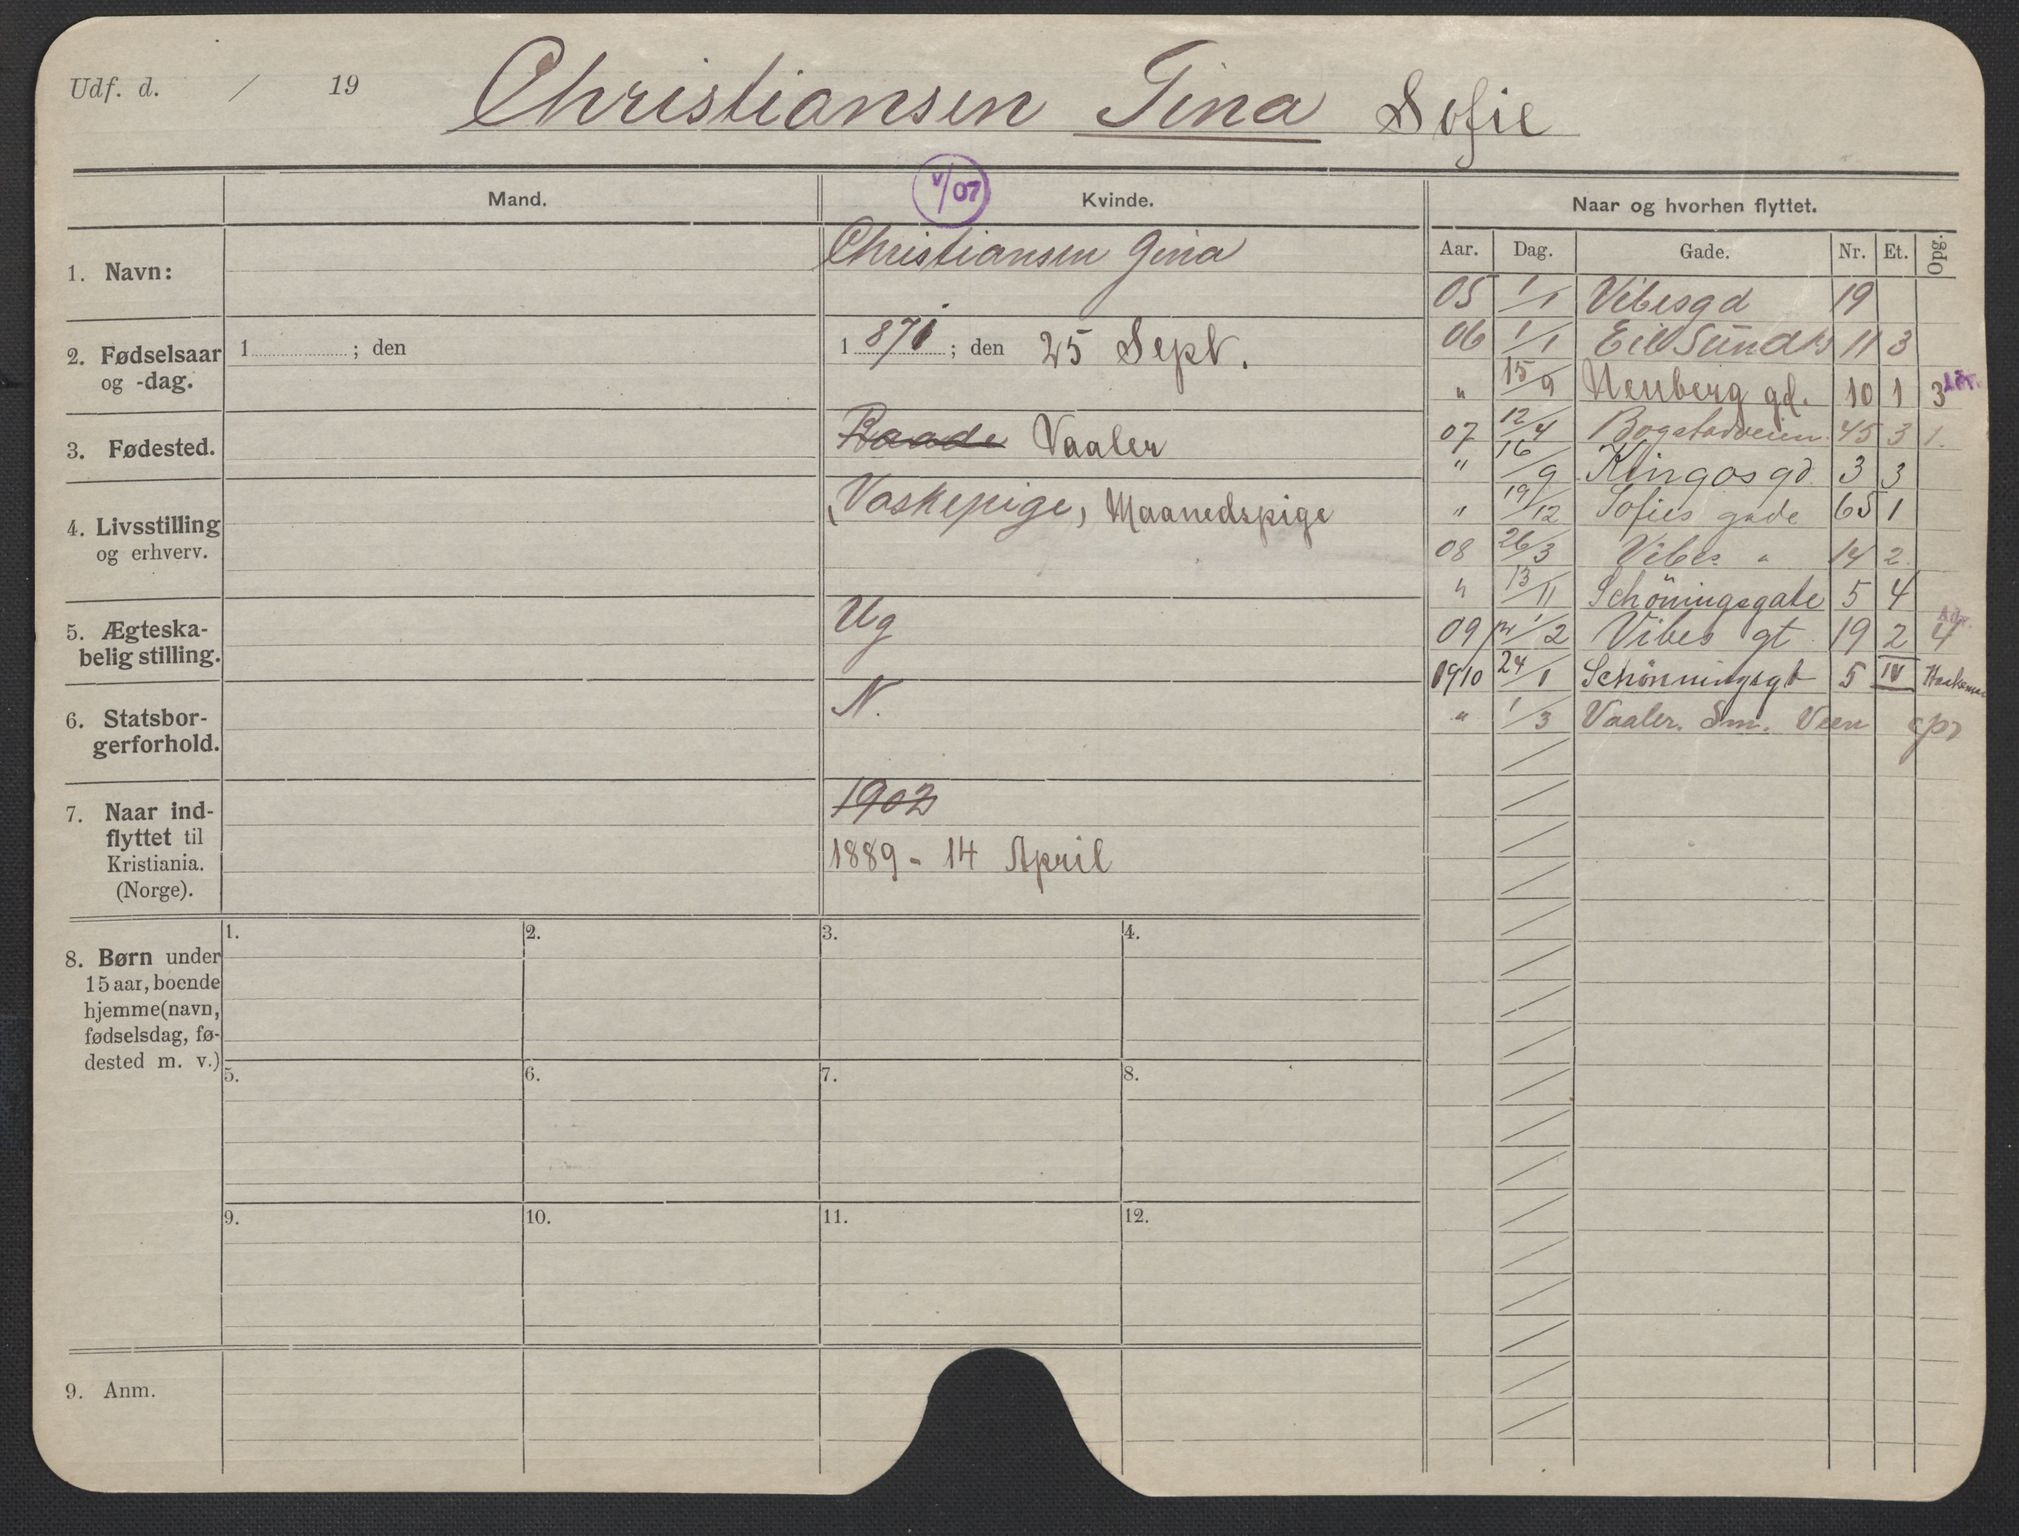 Udf. d. / 19 Christiansen Gina Sofie
Mand.
V/07
Kvinde.
Naar og hvorhen flyttet.
Aar. Dag. Gade. Nr. Et. Opg.
1. Navn:
Christiansen Gina
2. Fødselsaar
og -dag.
1 ; den
1871 ; den 25 Sept.
3. Fødested.
Raade Vaaler
4. Livsstilling
og erhverv.
Vaskepige, Maanedspige
5. Ægteska-
belig stilling.
Ug
6. Statsbor-
gerforhold.
N.
7. Naar ind-
flyttet til
Kristiania.
(Norge).
1902
1889 - 14 April
8. Børn under
15 aar, boende
hjemme (navn,
fødselsdag, fø-
dested m. v.)
1. 2. 3. 4.
5. 6. 7. 8.
9. 10. 11. 12.
9. Anm.
05 1/1 Vibesgd 19
06 1/1 Eil Sundts 11 3
" 15/9 Neuberg gd. 10 1 3
07 12/4 Bogstadveien 45 3 1.
" 16/9 Kingosgd 3 3
" 19/12 Sofies gade 65 1
08 26/3 Vibes " 14 2
" 13/11 Schöningsgate 5 4
09 1/2 Vibes gt 19 2 4
1910 24/1 Schönningsgt 5 IV
" 1/3 Vaaler. Sm. Veen